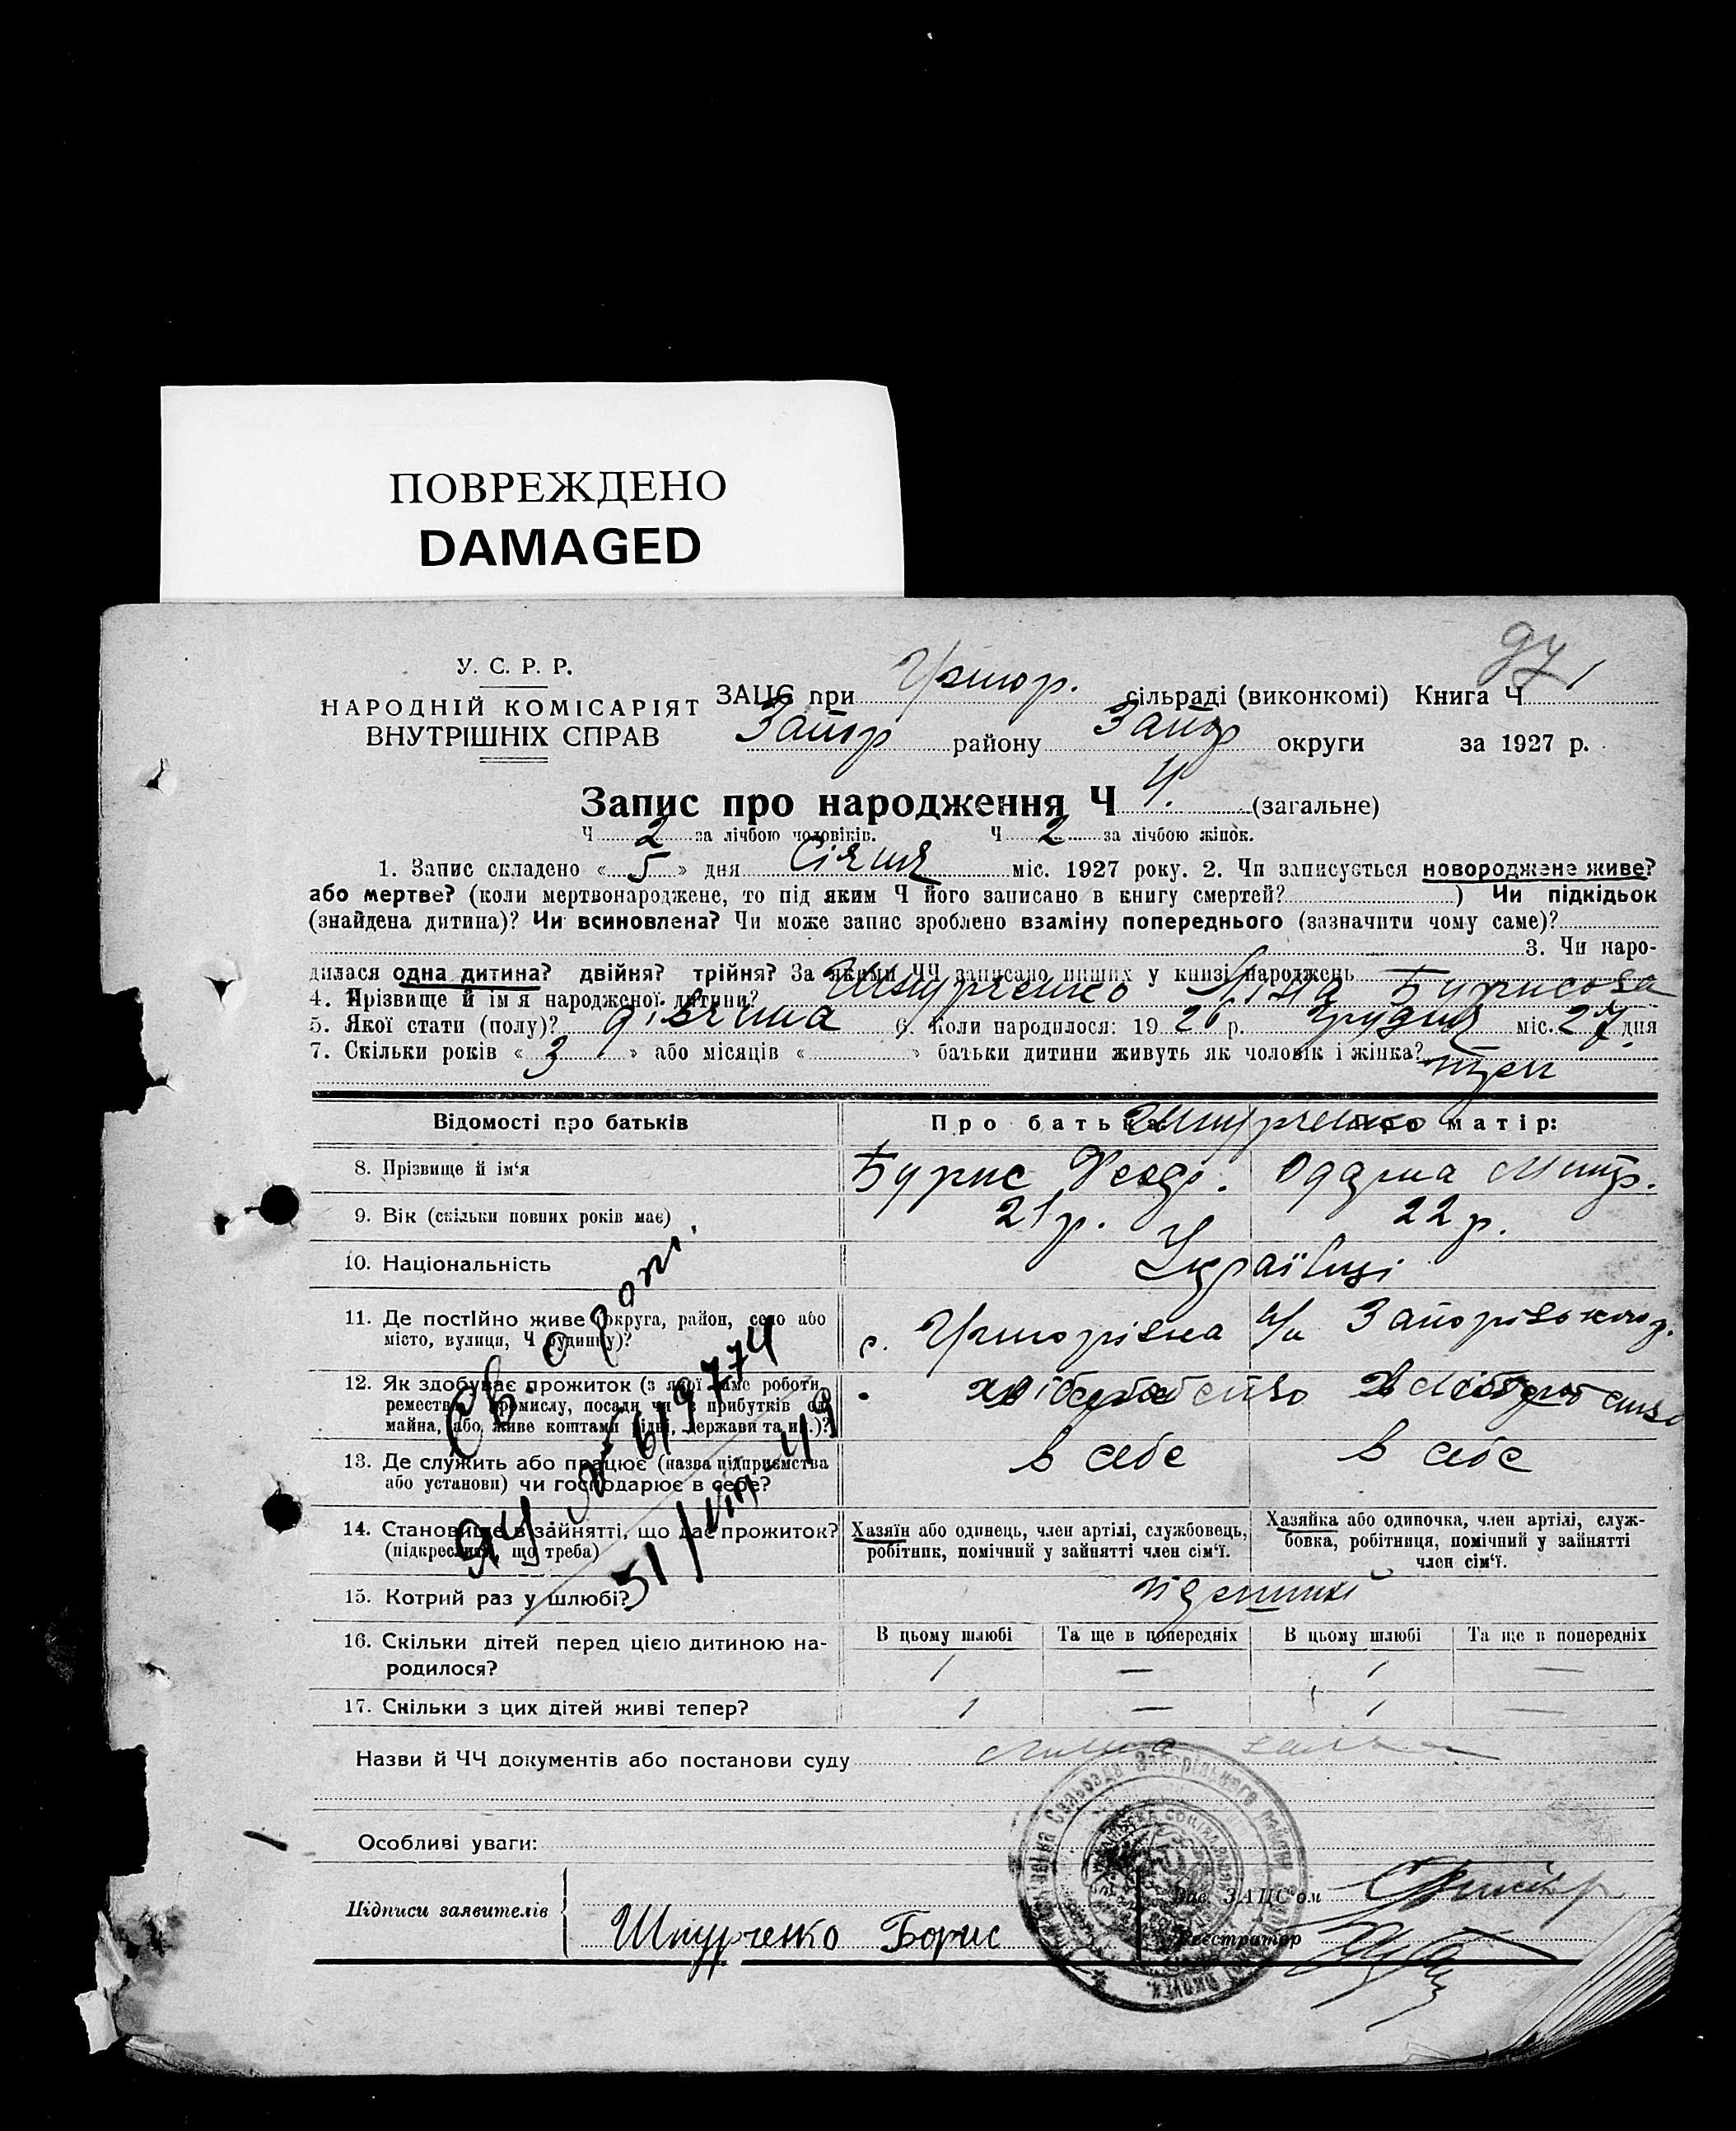 ПОВРЕЖДЕНО
DAMAGED
У. С. Р. Р.
НАРОДНІЙ КОМІСАРІЯТ
ВНУТРІШНІХ СПРАВ
ЗАЦС при сільраді (виконкомі) Книга Ч
Запор району Запор округи за 1927 р.
Запис про народження Ч 4. (загальне)
Ч 2 за лічбою чоловіків. Ч 2 за лічбою жінок.
1. Запис складено « 5 » дня Січня міс. 1927 року. 2. Чи записується новороджене живе?
або мертве? (коли мертвонароджене, то під яким Ч його записано в книгу смертей? ) Чи підкідьок
(знайдена дитина)? Чи всиновлена? Чи може запис зроблено взаміну попереднього (зазначити чому саме)?
3. Чи наро-
дилася одна дитина? двійня? трійня? За якими ЧЧ записано инших у книзі народжень
4. Прізвище й ім'я народженої дитини? Шпурченко Бурисова
5. Якої стати (полу)? дівчина 6. Коли народилося: 19 26 р. Грудня міс. 27 дня
7. Скільки років « 3 » або місяців « » батьки дитини живуть як чоловік і жінка?
Відомості про батьків
Про батька: Про матір:
Шпурченко
8. Прізвище й ім'я Бурис Феодр. Одарка Митр.
9. Вік (скільки повних років має) 21 р. 22 р.
10. Національність Українці
11. Де постійно живе (округа, район, село або
місто, вулиця, Ч будинку)?
с. Григорівка Запорізького р.
12. Як здобуває прожиток (з якої саме роботи,
ремества, промислу, посади чи з прибутків од
майна, або живе коштами рідні, держави та ин.)?
13. Де служить або працює (назва підприємства
або установи) чи господарює в себе?
в себе в себе
14. Становище в зайнятті, що дає прожиток?
(підкреслити, що треба)
Хазяїн або одинець, член артілі, службовець,
робітник, помічний у зайнятті член сім'ї.
Хазяйка або одиночка, член артілі, служ-
бовка, робітниця, помічний у зайнятті
член сім'ї.
15. Котрий раз у шлюбі?
16. Скільки дітей перед цією дитиною на-
родилося?
В цьому шлюбі Та ще в попередніх В цьому шлюбі Та ще в попередніх
1 — 1 —
17. Скільки з цих дітей живі тепер? 1 — 1 —
Назви й ЧЧ документів або постанови суду
Особливі уваги:
Підписи заявителів
Шпурченко Борис
Зав. ЗАЦС'ом
Реєстратор